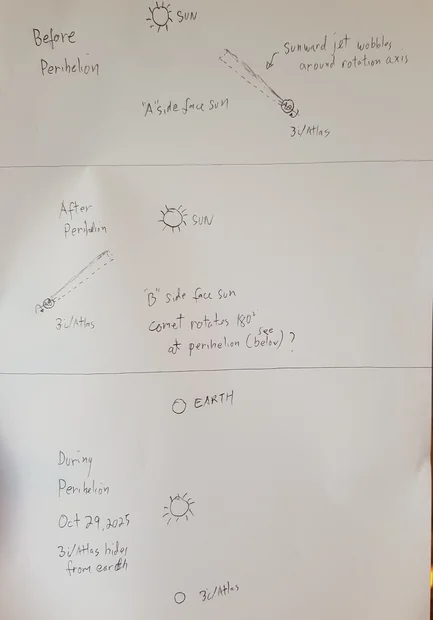 SUN
Before
Perihelion
Sunward jet wobbles
around rotation axis
"A" side face sun
3i/Atlas
After
Perihelion
SUN
3i/Atlas
"B" side face sun
comet rotates 180°
at perihelion (see below) ?
EARTH
During
Perihelion
Oct 29, 2025
3i/Atlas hides
from earth
3i/Atlas